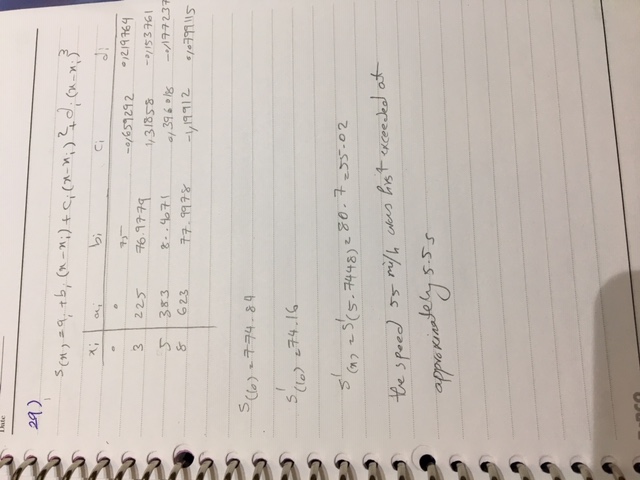 Date
29)
S(x) = aᵢ + bᵢ (x-xᵢ) + cᵢ (x-xᵢ)² + dᵢ (x-xᵢ)³
xᵢ aᵢ bᵢ cᵢ dᵢ
0 0 75 -0,659292 0,219764
3 225 76.9779 1,31858 -0,153761
5 383 80.4071 0,396018 -0,177237
8 623 77.9978 -1,19912 0,0799115
S(10) = 774.84
S'(10) = 74.16
S'(x) = S'(5.7448) = 80.7 = 55.02
the speed 55 mi/h was first exceeded at
approximately 5.5 s